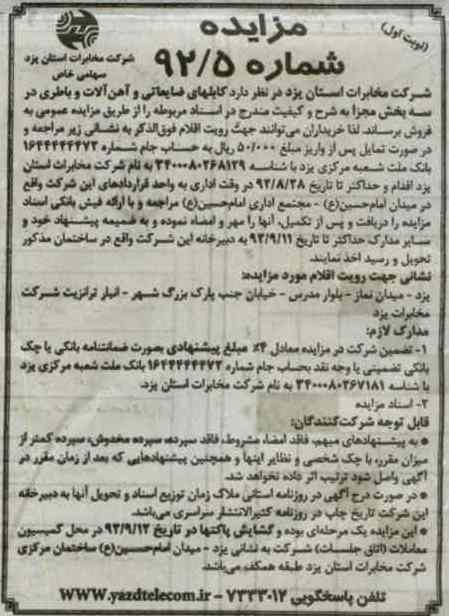 (نوبت اول)
مزایده
شماره ۹۲/۵
شرکت مخابرات استان یزد
سهامی خاص
شرکت مخابرات استان یزد در نظر دارد کابلهای ضایعاتی و آهن‌آلات و باطری در
سه بخش مجزا به شرح و کیفیت مندرج در اسناد مربوطه را از طریق مزایده عمومی به
فروش برساند. لذا خریداران می‌توانند جهت رویت اقلام فوق‌الذکر به نشانی زیر مراجعه و
در صورت تمایل پس از واریز مبلغ ۵۰/۰۰۰ ریال به حساب جام شماره ۱۶۴۴۴۴۴۴۷۲
بانک ملت شعبه مرکزی یزد با شناسه ۳۴۰۰۰۸۰۲۶۸۱۲۹ به نام شرکت مخابرات استان
یزد اقدام و حداکثر تا تاریخ ۹۲/۸/۲۸ در وقت اداری به واحد قراردادهای این شرکت واقع
در میدان امام‌حسین(ع) - مجتمع اداری امام‌حسین(ع) مراجعه و با ارائه فیش بانکی اسناد
مزایده را دریافت و پس از تکمیل، آنها را مهر و امضاء نموده و به ضمیمه پیشنهاد خود و
سایر مدارک حداکثر تا تاریخ ۹۲/۹/۱۱ به دبیرخانه این شرکت واقع در ساختمان مذکور
تحویل و رسید اخذ نمایند.
نشانی جهت رویت اقلام مورد مزایده:
یزد - میدان نماز - بلوار مدرس - خیابان جنب پارک بزرگ شهر - انبار ترانزیت شرکت
مخابرات یزد
مدارک لازم:
۱- تضمین شرکت در مزایده معادل ۴٪ مبلغ پیشنهادی بصورت ضمانتنامه بانکی یا چک
بانکی تضمینی یا وجه نقد بحساب جام شماره ۱۶۴۴۴۴۴۴۷۲ بانک ملت شعبه مرکزی یزد
با شناسه ۳۴۰۰۰۸۰۲۶۷۱۸۱ به نام شرکت مخابرات استان یزد.
۲- اسناد مزایده
قابل توجه شرکت‌کنندگان:
* به پیشنهادهای مبهم، فاقد امضاء، مشروط، فاقد سپرده، سپرده مخدوش، سپرده کمتر از
میزان مقرر، با چک شخصی و نظایر اینها و همچنین پیشنهادهایی که بعد از زمان مقرر در
آگهی واصل شود ترتیب اثر داده نخواهد شد.
* در صورت درج آگهی در روزنامه استانی ملاک زمان توزیع اسناد و تحویل آنها به دبیرخانه
این شرکت تاریخ چاپ در روزنامه کثیرالانتشار سراسری می‌باشد.
* این مزایده یک مرحله‌ای بوده و گشایش پاکتها در تاریخ ۹۲/۹/۱۲ در محل کمیسیون
معاملات (اتاق جلسات) شرکت به نشانی یزد - میدان امام‌حسین(ع) ساختمان مرکزی
شرکت مخابرات استان یزد طبقه همکف می‌باشد.
تلفن پاسخگویی ۷۲۳۳۰۱۲ - WWW.yazdtelecom.ir